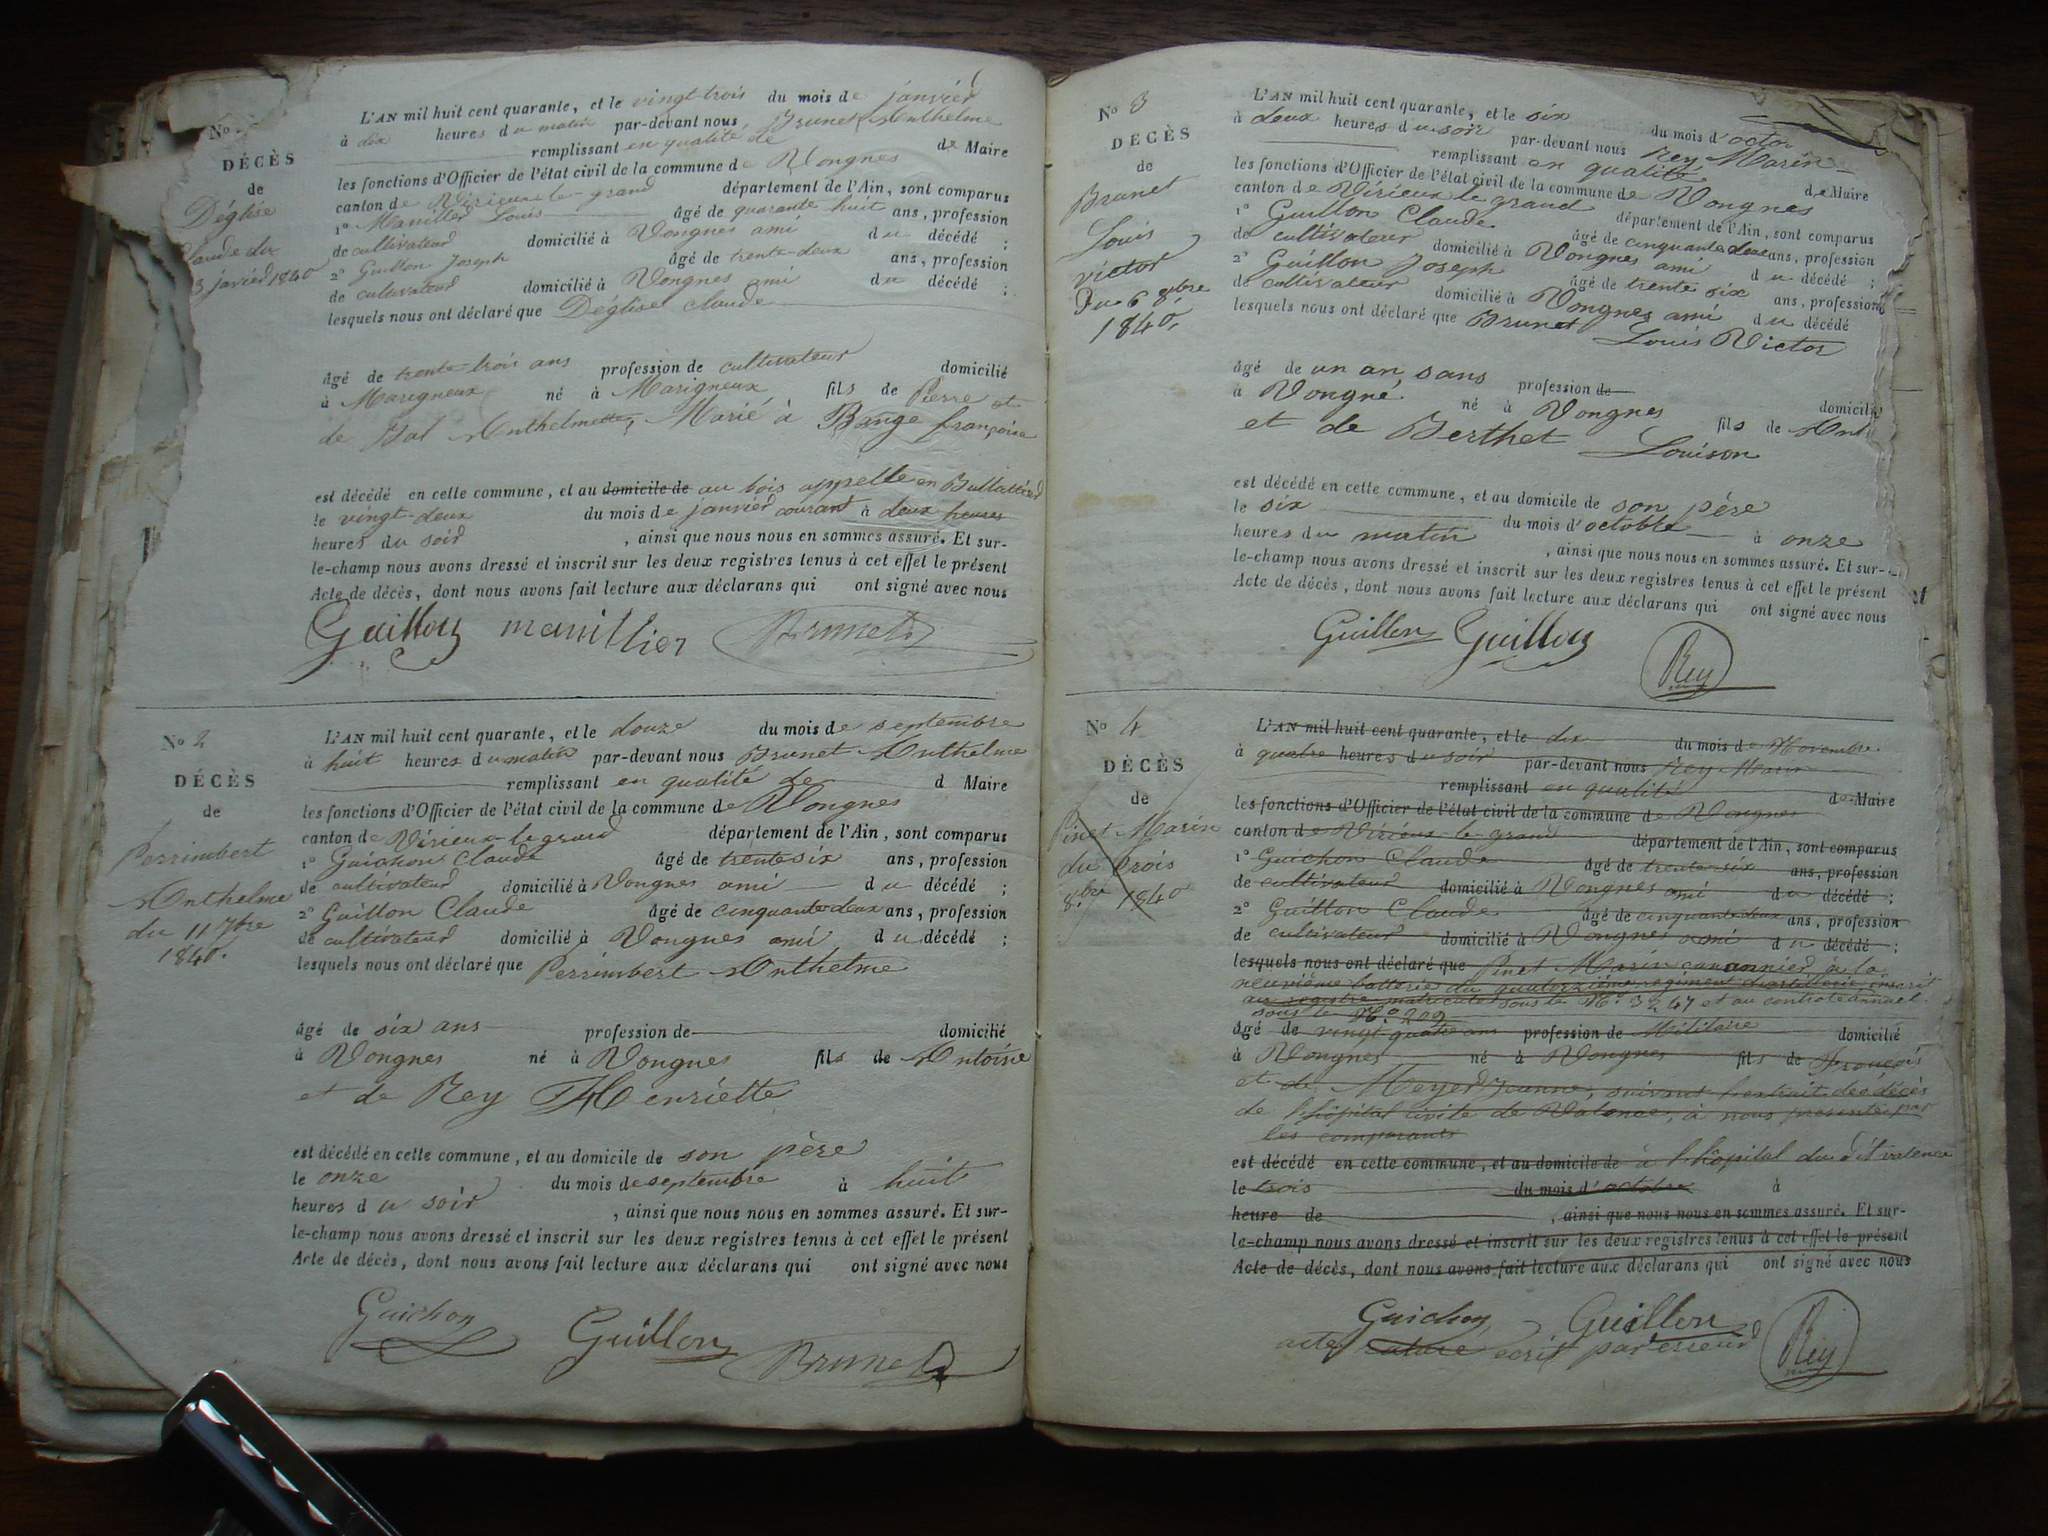 No
DÉCÈS
de
Déglise
Claude du
janvier 1840
L'AN mil huit cent quarante, et le vingt-trois du mois de janvier
à dix heures du matin par-devant nous, Brunet Anthelme
remplissant en qualité de de Maire
les fonctions d'Officier de l'état civil de la commune de Vongnes
canton de Virieux-le-grand département de l'Ain, sont comparus
1° Louis âgé de quarante huit ans, profession
de cultivateur domicilié à Vongnes ami du décédé ;
2° Guillon Joseph âgé de trente-deux ans, profession
de cultivateur domicilié à Vongnes ami du décédé ;
lesquels nous ont déclaré que Déglise Claude
âgé de trente-trois ans profession de cultivateur domicilié
à Marigneux né à Marigneux fils de Pierre et
de Anthelmette, Marié à Bange françoise
est décédé en cette commune, et au domicile de au bois appellé en
le vingt-deux du mois de janvier courant à deux heures
heures du soir, ainsi que nous nous en sommes assuré. Et sur-
le-champ nous avons dressé et inscrit sur les deux registres tenus à cet effet le présent
Acte de décès, dont nous avons fait lecture aux déclarans qui ont signé avec nous
Guillon manillier Brunet
No 2
DÉCÈS
de
Perrimbert
Anthelme
du 11 7bre
1840.
L'AN mil huit cent quarante, et le douze du mois de septembre
à huit heures du matin par-devant nous Brunet Anthelme
remplissant en qualité de d Maire
les fonctions d'Officier de l'état civil de la commune de Vongnes
canton de Virieux-le-grand département de l'Ain, sont comparus
1° Guichon Claude âgé de trente six ans, profession
de cultivateur domicilié à Vongnes ami du décédé ;
2° Guillon Claude âgé de cinquante deux ans, profession
de cultivateur domicilié à Vongnes ami du décédé ;
lesquels nous ont déclaré que Perrimbert Anthelme
âgé de six ans profession de domicilié
à Vongnes né à Vongnes fils de Antoine
et de Rey Henriette
est décédé en cette commune, et au domicile de son père
le onze du mois de septembre à huit
heures du soir, ainsi que nous nous en sommes assuré. Et sur-
le-champ nous avons dressé et inscrit sur les deux registres tenus à cet effet le présent
Acte de décès, dont nous avons fait lecture aux déclarans qui ont signé avec nous
Guichon Guillon Brunet
No 3
DÉCÈS
de
Brunet
Louis
victor
Du 6 8bre
1840.
L'AN mil huit cent quarante, et le six du mois d'octo
à deux heures du soir par-devant nous Rey Marin
remplissant en qualité de Maire
les fonctions d'Officier de l'état civil de la commune de Vongnes
canton de Virieux le grand département de l'Ain, sont comparus
1° Guillon Claude âgé de cinquante deux ans, profession
de cultivateur domicilié à Vongnes ami du décédé ;
2° Guillon Joseph âgé de trente six ans, profession
de cultivateur domicilié à Vongnes ami du décédé
lesquels nous ont déclaré que Brunet
Louis Victor
âgé de un an, sans profession de domicilié
à Vongne né à Vongnes fils de Ant
et de Berthet Louison
est décédé en cette commune, et au domicile de son père
le six du mois d'octobre à onze
heures du matin, ainsi que nous nous en sommes assuré. Et sur-
le-champ nous avons dressé et inscrit sur les deux registres tenus à cet effet le présent
Acte de décès, dont nous avons fait lecture aux déclarans qui ont signé avec nous
Guillon Guillon Rey
No 4
DÉCÈS
de
Pinet Marin
du trois
8bre 1840
L'AN mil huit cent quarante, et le dix du mois de Novembre
à quatre heures du soir par-devant nous Rey Marin
remplissant en qualité de Maire
les fonctions d'Officier de l'état civil de la commune de Vongnes
canton de Virieux-le-grand département de l'Ain, sont comparus
1° Guichon Claude âgé de trente six ans, profession
de cultivateur domicilié à Vongnes ami du décédé ;
2° Guillon Claude âgé de cinquante deux ans, profession
de cultivateur domicilié à Vongnes ami du décédé ;
lesquels nous ont déclaré que Pinet Marin canonnier à la
neuvième batterie du quatorzième régiment d'artillerie inscrit
au registre matricule sous le N° 3247 et au controle annuel
sous le N° 209
âgé de vingt quatre ans profession de Militaire domicilié
à Vongnes né à Vongnes fils de François
et de Jeanne, suivant l'extrait des décès
de l'hôpital civile de Valence, à nous présenté par
les comparants
est décédé en cette commune, et au domicile de à l'hôpital du dit valence
le trois du mois d'octobre à
heure de, ainsi que nous nous en sommes assuré. Et sur-
le-champ nous avons dressé et inscrit sur les deux registres tenus à cet effet le présent
Acte de décès, dont nous avons fait lecture aux déclarans qui ont signé avec nous
Guichon Guillon Rey
acte raturé ecrit par erreur